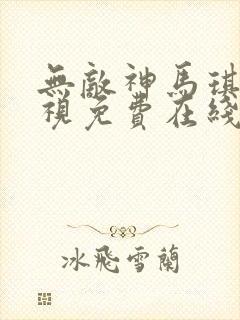 無敵神馬琪
視免費在綫
冰飛雪蘭